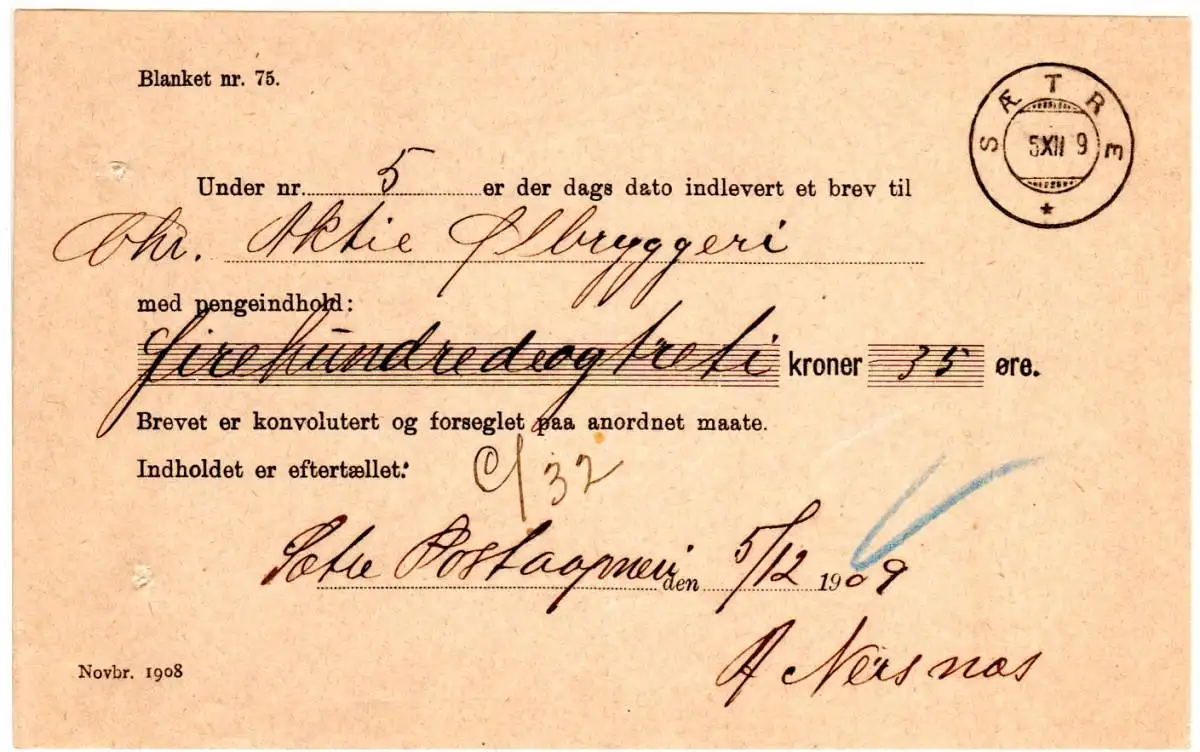 Blanket nr. 75.
SÆTRE
5XII 9
Under nr. 5 er der dags dato indlevert et brev til
Chr. Aktie Ølbryggeri
med pengeindhold:
firehundredeogtreti kroner 35 øre.
Brevet er konvolutert og forseglet paa anordnet maate.
Indholdet er eftertællet:
C/32
Sætre Postaapneri den 5/12 1909
A Nersnæs
Novbr. 1908